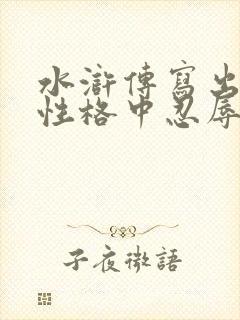 水滸傳寫出
性格中忍辱
子夜微語